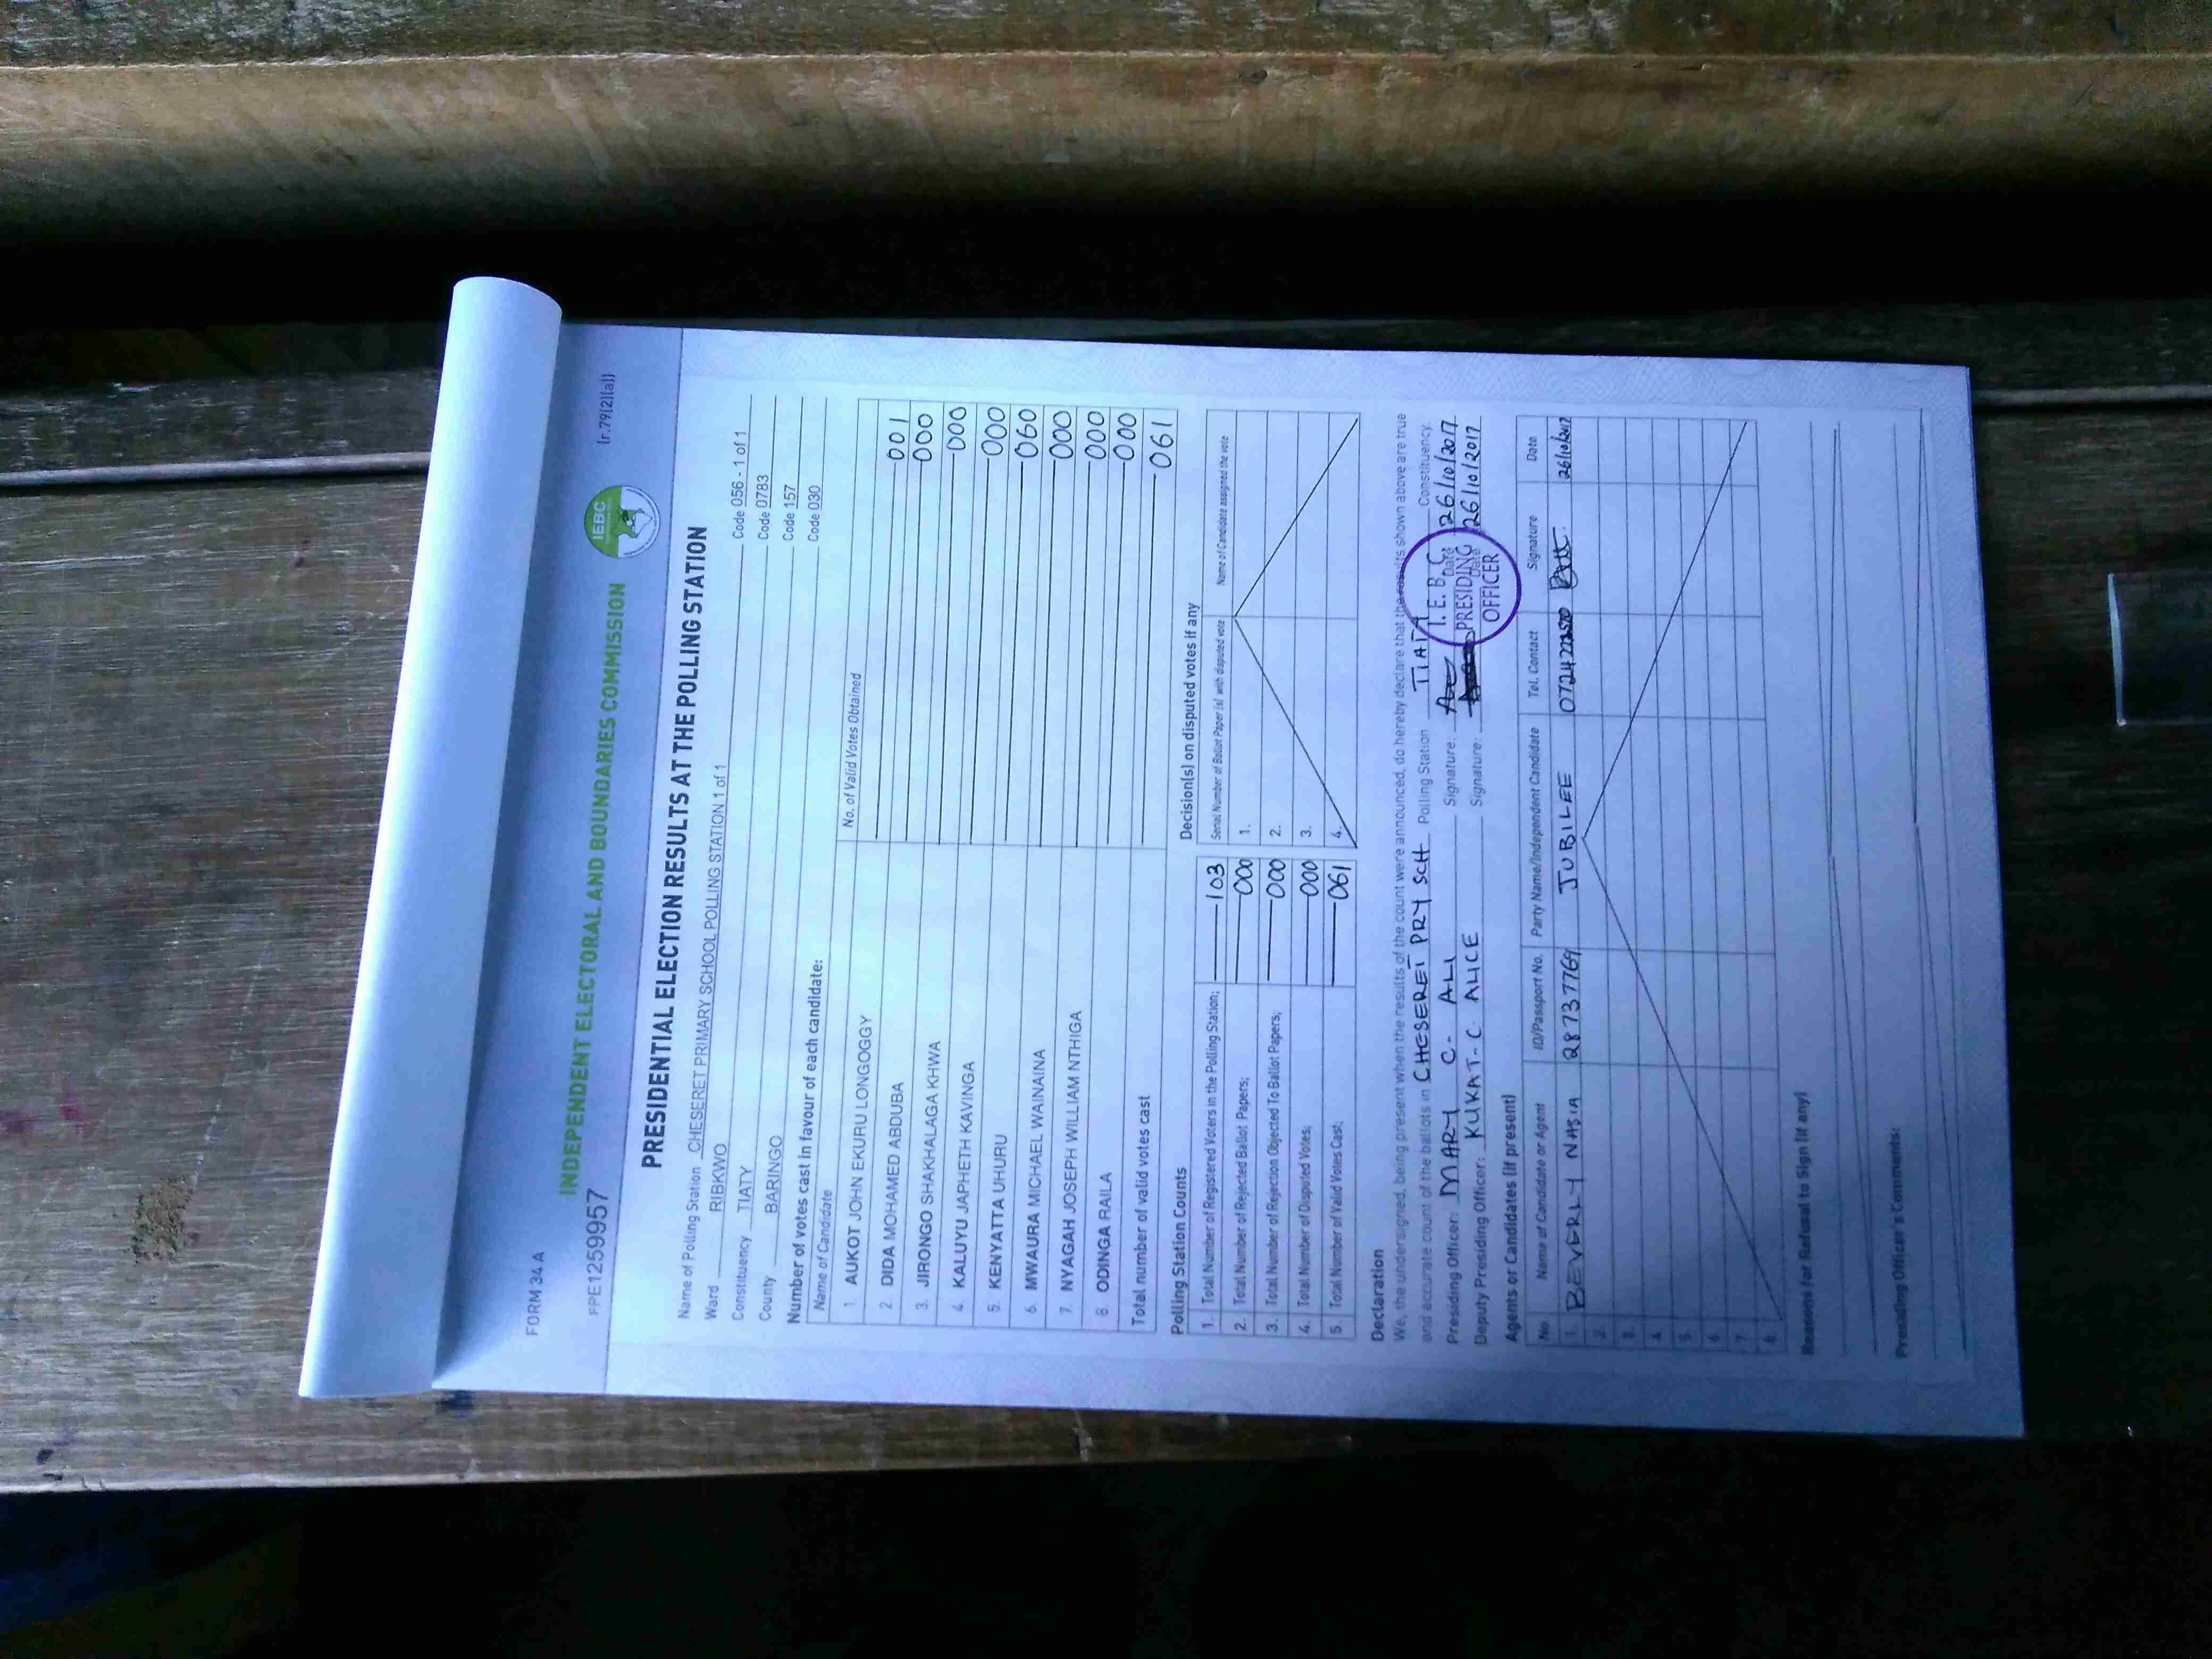 FORM 34 A
(r.79(2)(a))
INDEPENDENT ELECTORAL AND BOUNDARIES COMMISSION
IEBC
FPE1259957
PRESIDENTIAL ELECTION RESULTS AT THE POLLING STATION
Name of Polling Station CHESERET PRIMARY SCHOOL POLLING STATION 1 of 1 Code 056 - 1 of 1
Ward RIBKWO Code 0783
Constituency TIATY Code 157
County BARINGO Code 030
Number of votes cast in favour of each candidate:
Name of Candidate No. of Valid Votes Obtained
1. AUKOT JOHN EKURU LONGOGGY 001
2 DIDA MOHAMED ABDUBA 000
3. JIRONGO SHAKHALAGA KHWA 000
4 KALUYU JAPHETH KAVINGA 000
5. KENYATTA UHURU 060
6 MWAURA MICHAEL WAINAINA 000
7. NYAGAH JOSEPH WILLIAM NTHIGA 000
8 ODINGA RAILA 000
Total number of valid votes cast 061
Polling Station Counts
1. Total Number of Registered Voters in the Polling Station; 103
2. Total Number of Rejected Ballot Papers; 000
3. Total Number of Rejection Objected To Ballot Papers; 000
4. Total Number of Disputed Votes; 000
5. Total Number of Valid Votes Cast; 061
Decision(s) on disputed votes if any
Serial Number of Ballot Paper (s) with disputed vote Name of Candidate assigned the vote
1.
2.
3.
4.
Declaration
We, the undersigned, being present when the results of the count were announced, do hereby declare that the results shown above are true
and accurate count of the ballots in CHESEREI PRY SCH Polling Station TIATY Constituency.
Presiding Officer: MARY C- ALI Signature: Date 26/10/2017
Deputy Presiding Officer: KUKAT-C ALICE Signature: Date 26/10/2017
I. E. B. C.
PRESIDING
OFFICER
Agents or Candidates (if present)
No. Name of Candidate or Agent ID/Passport No. Party Name/Independent Candidate Tel. Contact Signature Date
1. BEVERLY NASIA 28737769 JUBILEE 26/10/2017
2.
3.
4
5.
6
7
8.
Reasons for Refusal to Sign (if any)
Presiding Officer's Comments: